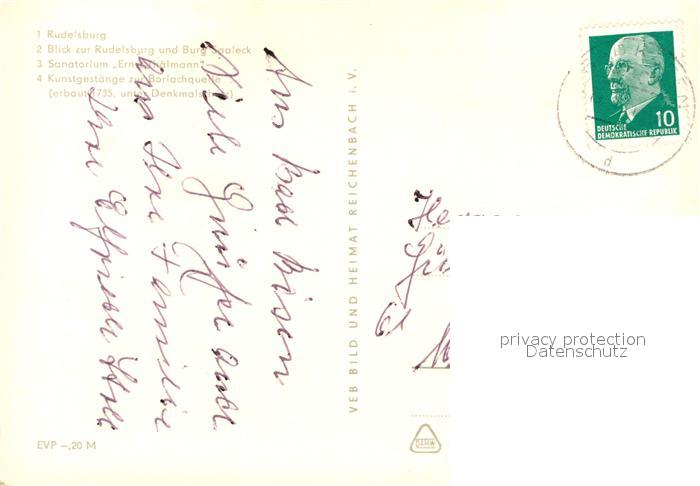 1 Rudelsburg
2 Blick zur Rudelsburg und Burg Saaleck
3 Sanatorium „Ernst Thälmann"
4 Kunstgestänge zur Borlachquelle
(erbaut 1735, unter Denkmalschutz)
Aus Bad Kösen
Viele Grüße auch
Ihre Familie
Ihre Elfriede
VEB BILD UND HEIMAT REICHENBACH I. V.
EVP –,20 M
10
DEUTSCHE
DEMOKRATISCHE REPUBLIK
privacy protection
Datenschutz